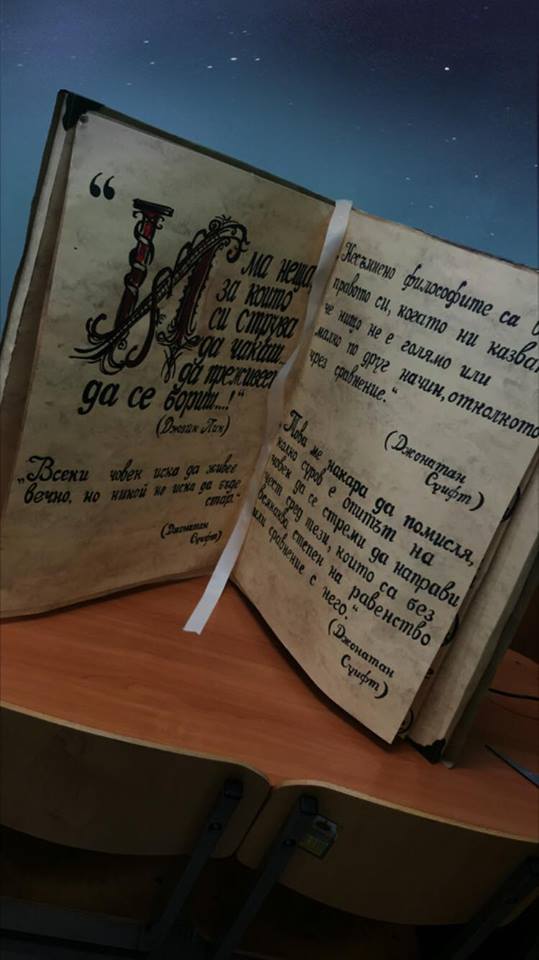 “Има неща
за които
си струва
да чакаш,
да преживееш
да се бориш...!“
(Джейн Лин)
„Всеки човек иска да живее
вечно, но никой не иска да бъде
стар.“
(Джонатан
Суифт)
„Несъмнено философите са в
правото си, когато ни казват
че нищо не е голямо или
малко по друг начин, отколкото
чрез сравнение.“
(Джонатан
Суифт)
„Това ме накара да помисля,
колко суров е опитът на
човек да се стреми да направи
чест сред тези, които са без
всякаква степен на равенство
или сравнение с него.“
(Джонатан
Суифт)